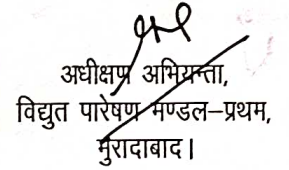 अधीक्षण अभियन्ता,
विद्युत पारेषण मण्डल–प्रथम,
मुरादाबाद।